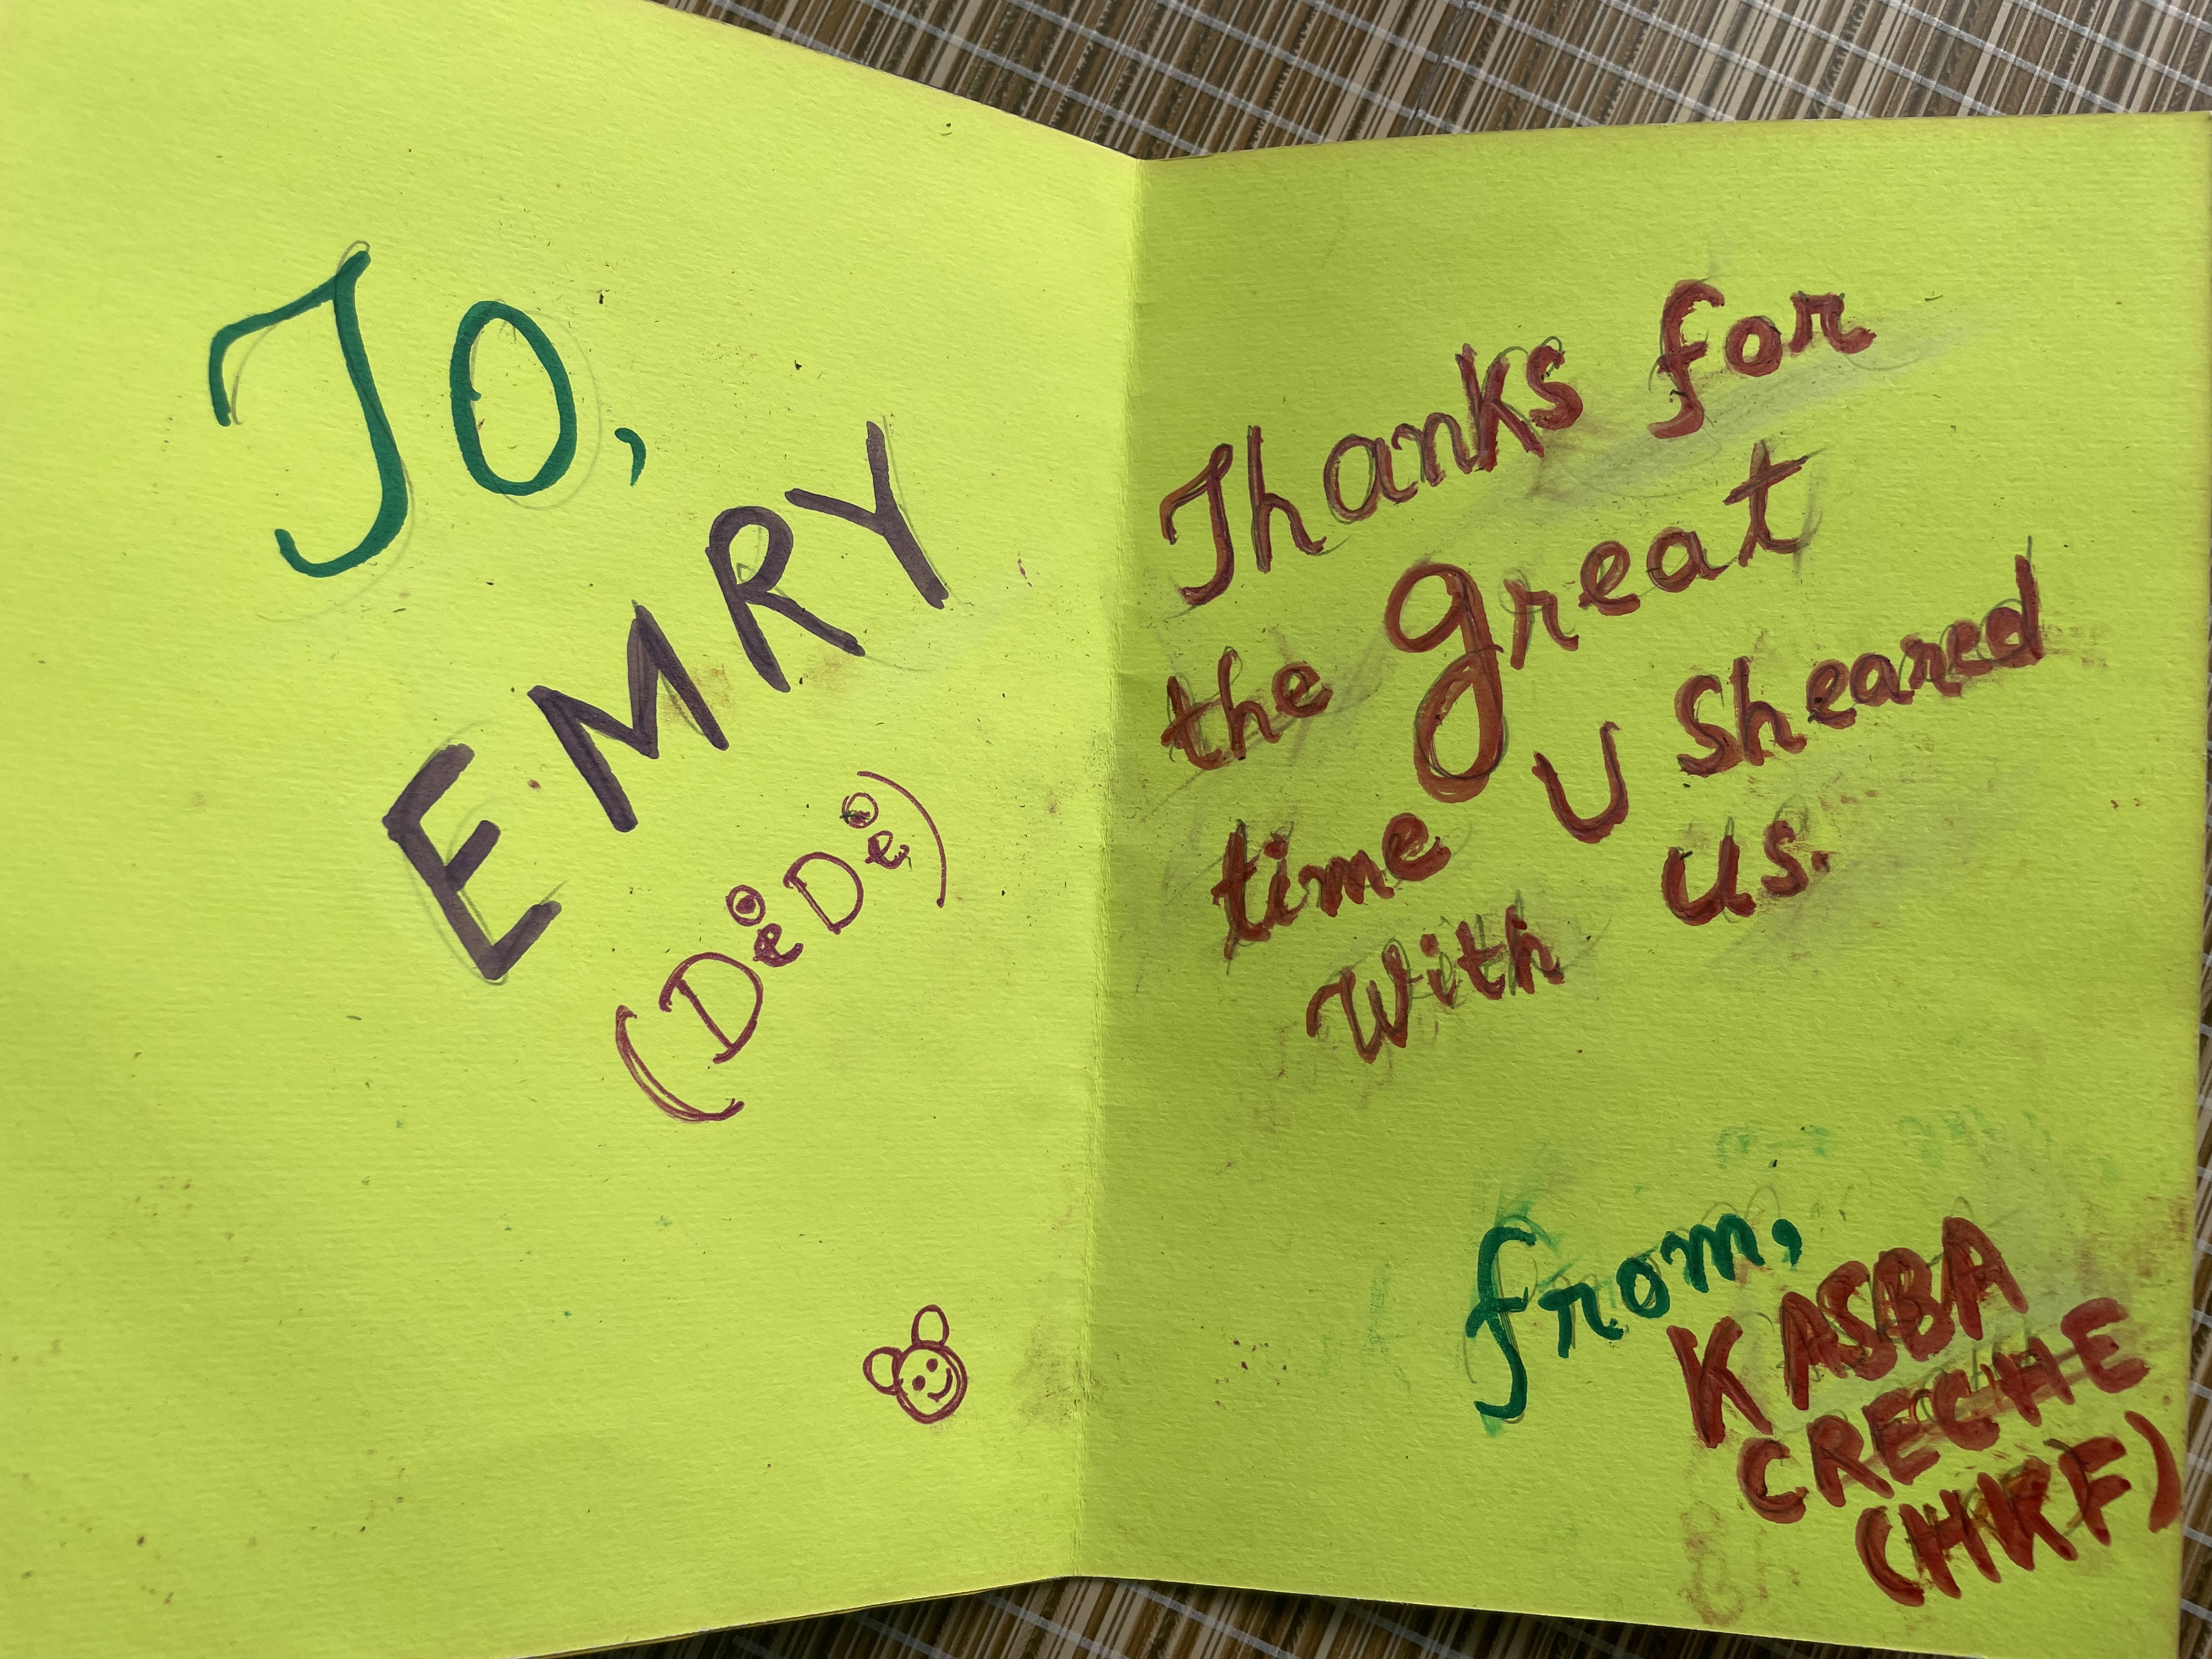 TO,
EMRY
(DeDe)
Thanks for
the great
time U Sheared
With us.
from,
KASBA
CRECHE